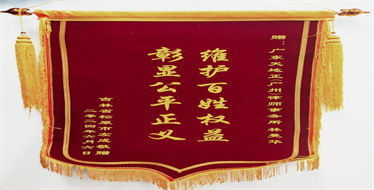 赠：广东天地正(广州)律师事务所林曼华
维护百姓权益
彰显公平正义
吉林省松原市左成敏赠
二零二四年六月六日